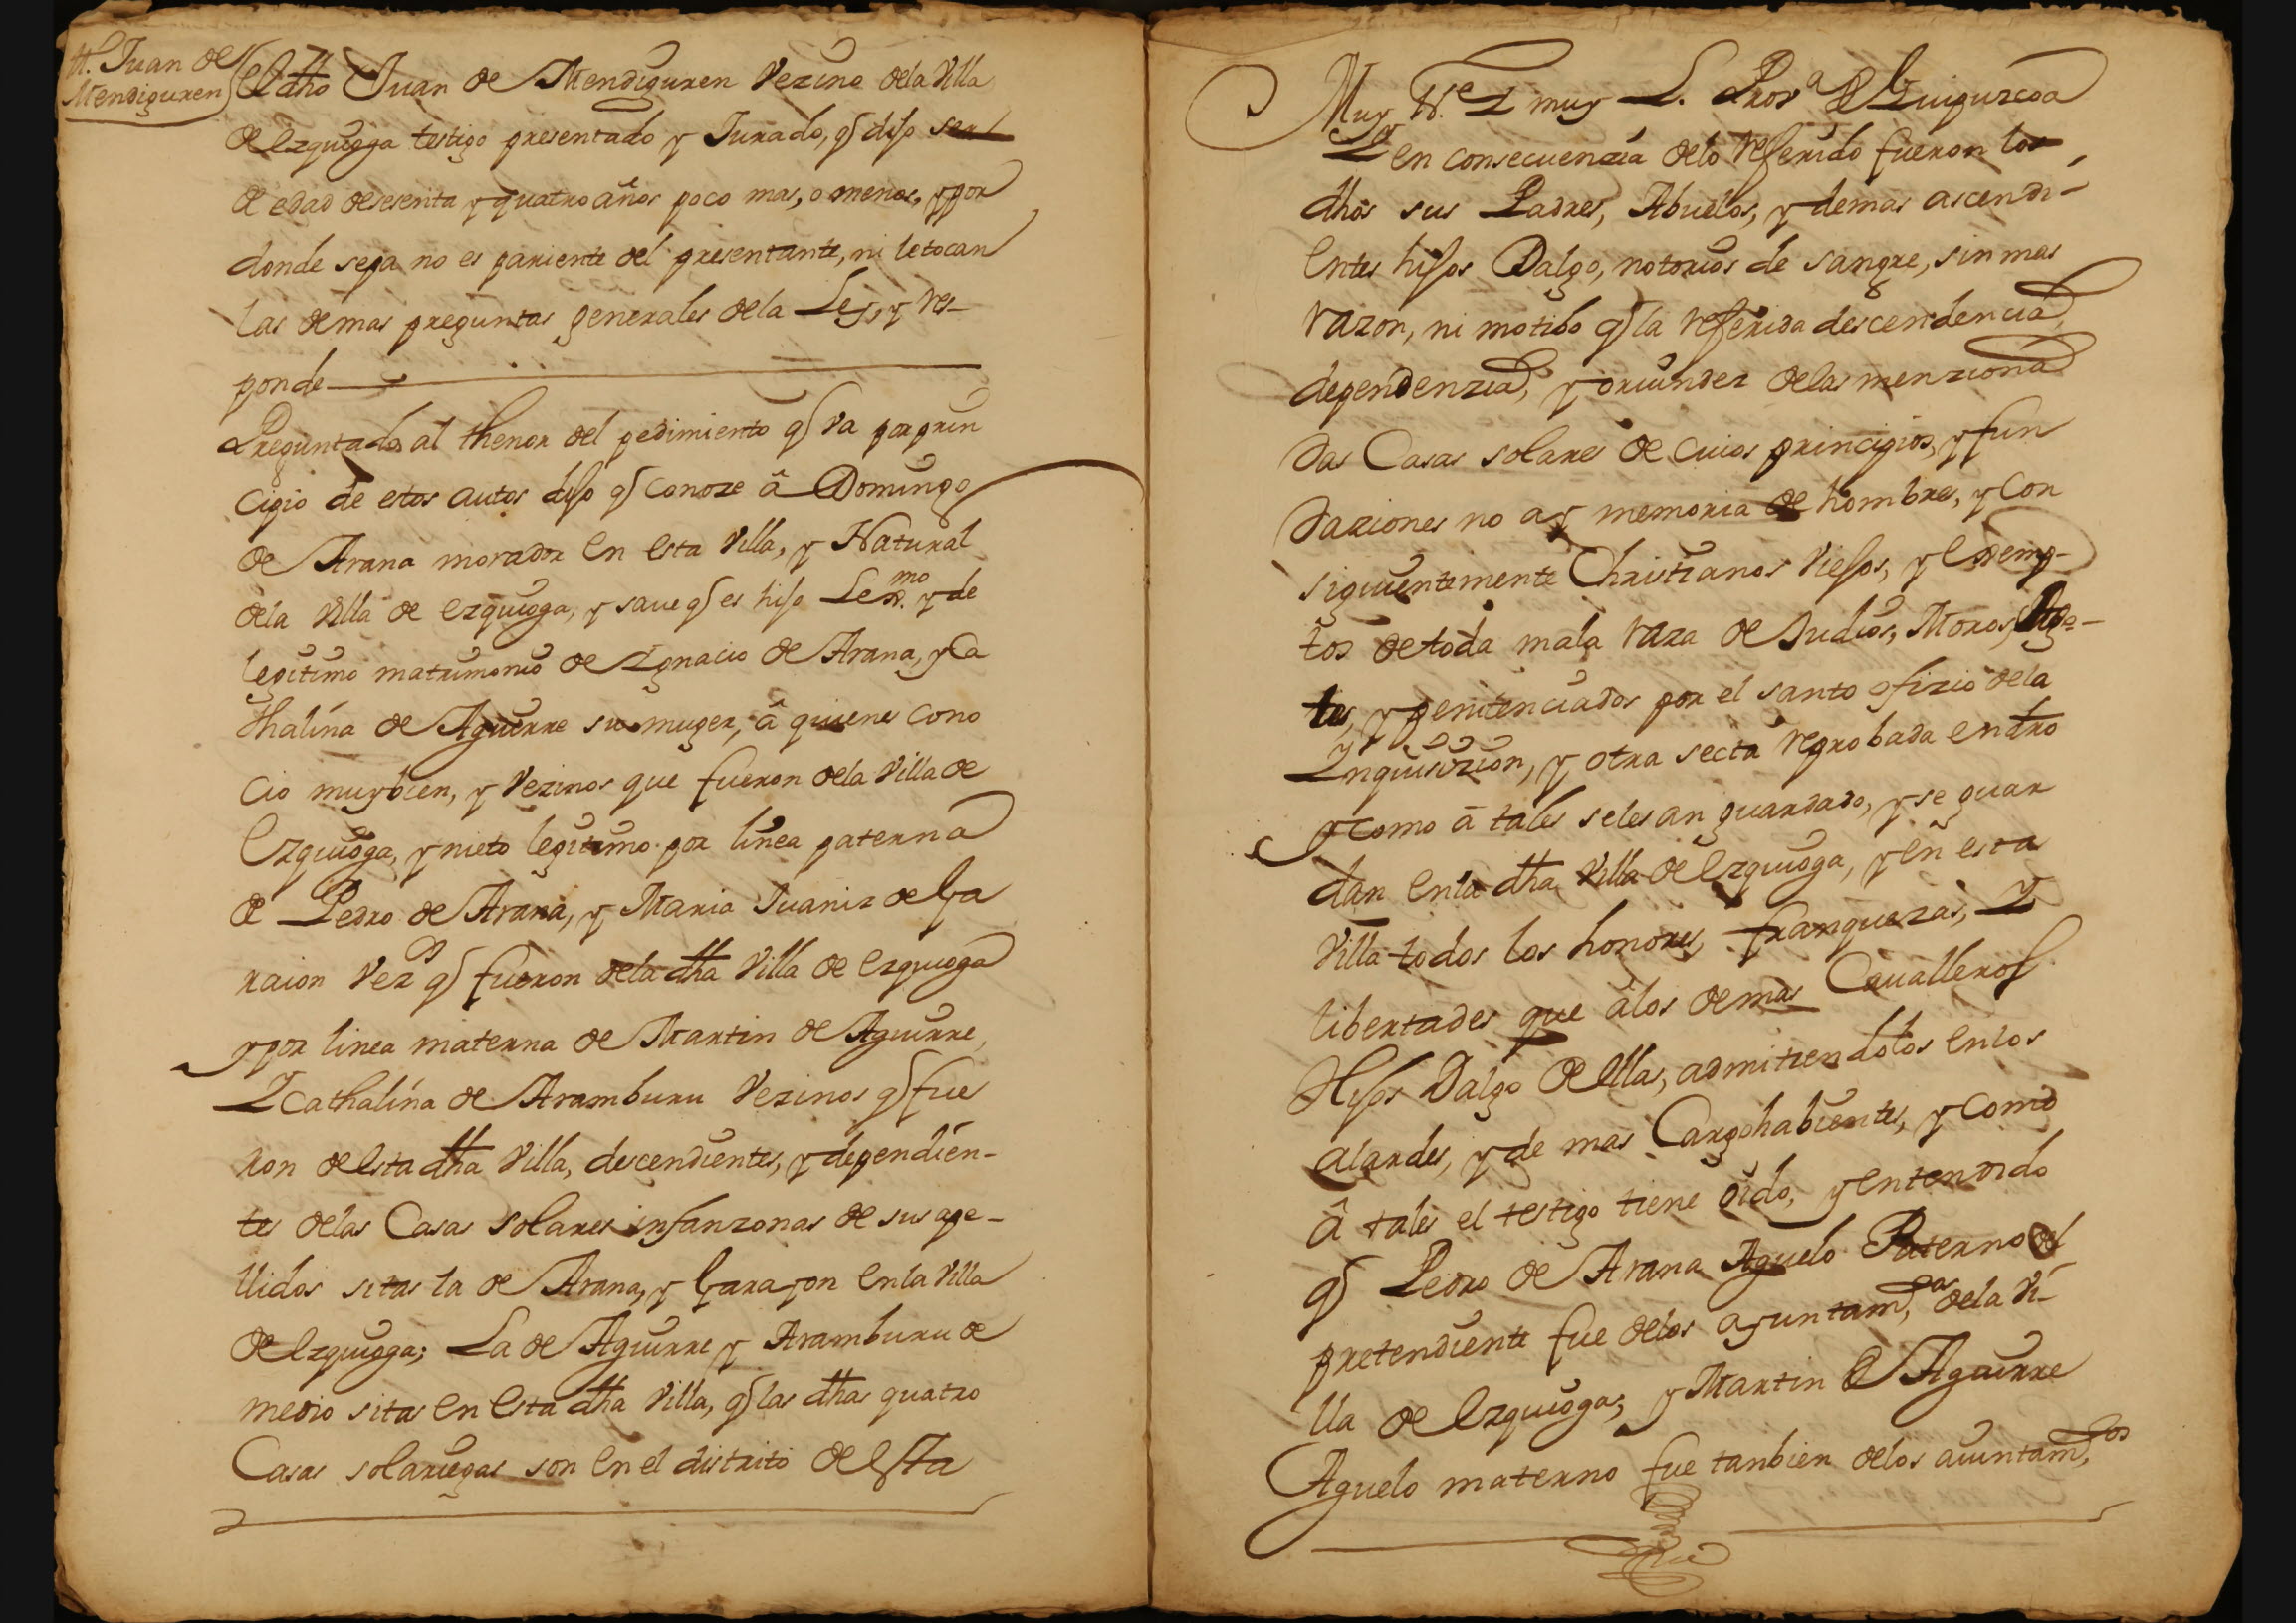 tt. Juan de
Mendiguren
El dho Juan de Mendiguren Vezino dela Villa
de Ezquioga testigo presentado y Jurado, q dijo ser
de edad desesenta y quatro años poco mas, o menos, y por
donde sepa no es pariente del presentante, ni letocan
las demas preguntas generales dela Ley, y res-
ponde
Preguntado al thenor del pedimiento q va por prin
cipio de estos autos dijo q conoze â Domingo
de Arana morador en esta Villa, y Natural
dela Villa de Ezquioga, y saue q es hijo Lexmo. y de
legitimo matrimonio de Ignacio de Arana, y Ca
thalina de Aguirre su muger, â quienes cono
cio muy bien, y Vezinos que fueron dela Villa de
Ezquioga, y nieto legitimo por linea paterna
de Pedro de Arana, y Maria Juaniz de Ga
raion Vezs q fueron dela dha Villa de Ezquioga
y por linea materna de Martin de Aguirre,
Y Cathalina de Aramburu Vezinos q fue
ron de esta dha Villa, descendientes, y dependien-
tes delas Casas solares infanzonas de sus ape-
llidos sitas la de Arana, y Garayon en la Villa
de Ezquioga; La de Aguirre y Aramburu de
medio sitas en esta dha Villa, q las dhas quatro
Casas solariegas son en el distrito de esta
Muy Ne. Y muy L. Prova. de Guipuzcoa
Y en consecuenzia delo referido fueron los
dhos sus Padres, Abuelos, y demas ascendi-
entes hijos Dalgo, notorios de sangre, sin mas
razon, ni motibo q la referida descendencia,
dependenzia, y oriundez delas menziona
das Casas solares de cuios principios, y fun
daziones no ay memoria de hombres, y con
siguientemente Christianos Viejos, y Exemp-
tos de toda mala raza de Judios, Moros, Ago-
tes, y penitenciados por el santo ofizio dela
Inquisizion, y otra secta reprobada en dro
y como â tales seles an guardado, y se guar
dan en la dha Villa de Ezquioga, y en esta
Villa todos los honores, franquezas, Y
libertades que âlos demas Cavalleros
Hijos Dalgo de ellas, admitiendolos en los
alardes, y de mas Cargohabientes, y como
â tales el testigo tiene oido, y entendido
q Pedro de Arana Aguelo Paterno del
pretendiente fue delos ayuntamtos, dela Vi-
lla de Ezquioga; y Martin de Aguirre
Aguelo materno fue tanbien delos aiuntamtos,